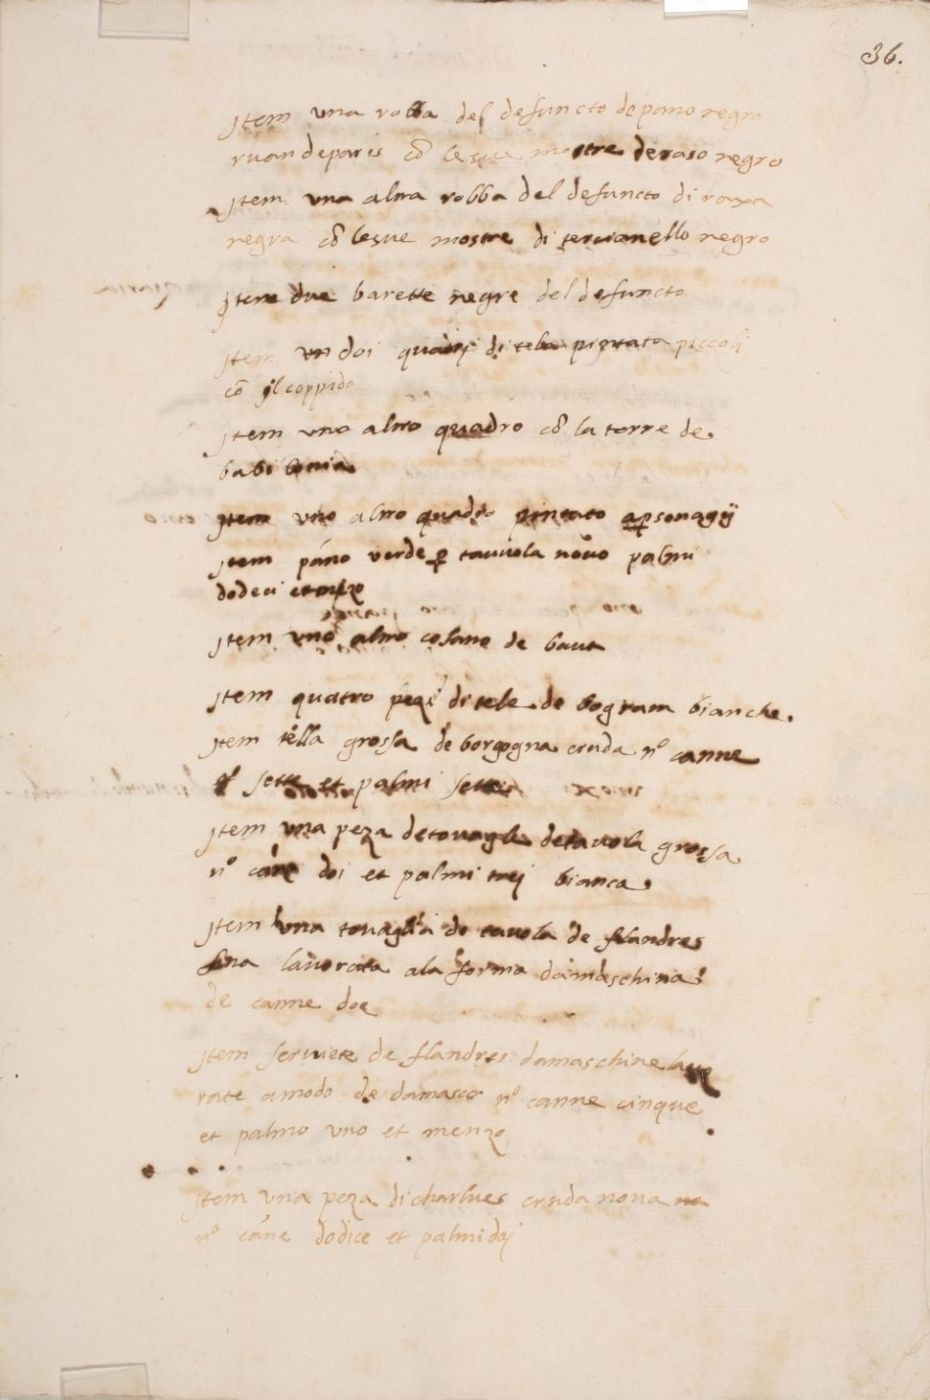 36.
jtem una robba del defuncto de pano negro
ruan de paris cõ le sue mostre de raso negro
jtem una altra robba del defuncto di raxa
negra cõ le sue mostre di tercianello negro
jtem due barette negre del defuncto
jtem un doi quadrj di tela pintata piccolj
cõ il coppido
jtem uno altro quadro cõ la torre de
babilonia
jtem uno altro quadro pintato a personagij
jtem páno verde per tauuola nouo palmi
dodeci et mezo
jtem uno altro cofano de baut
jtem quatro peze di tele de bogram bianche.
jtem tella grossa de borgogna cruda nº canne
sette et palmi sette
jtem una peza de touaglie de tauola grossa
nº cane doi et palmi trej bianca
jtem una touaglia de tauola de flandres
fina lauorata ala forma damaschina
de canne doe
jtem seruiete de flandres damaschine lauo
rate a modo de damasco nº canne cinque
et palmo uno et menzo
jtem una peza di charlues cruda noua
nº cáne dodice et palmi doj